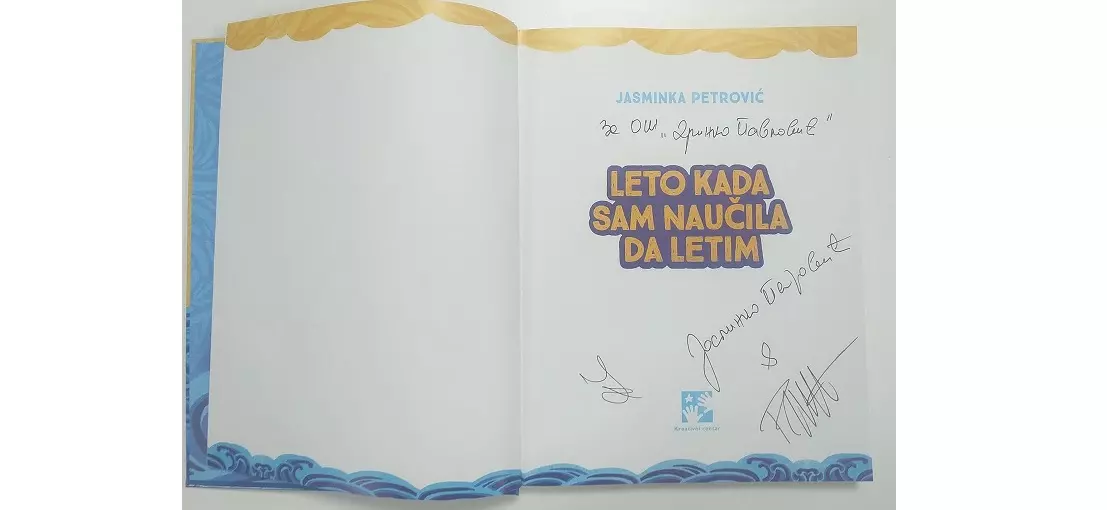 JASMINKA PETROVIĆ
За ОШ „Дринка Павловић"
LETO KADA
SAM NAUČILA
DA LETIM
Јасминка Петровић
Kreativni centar